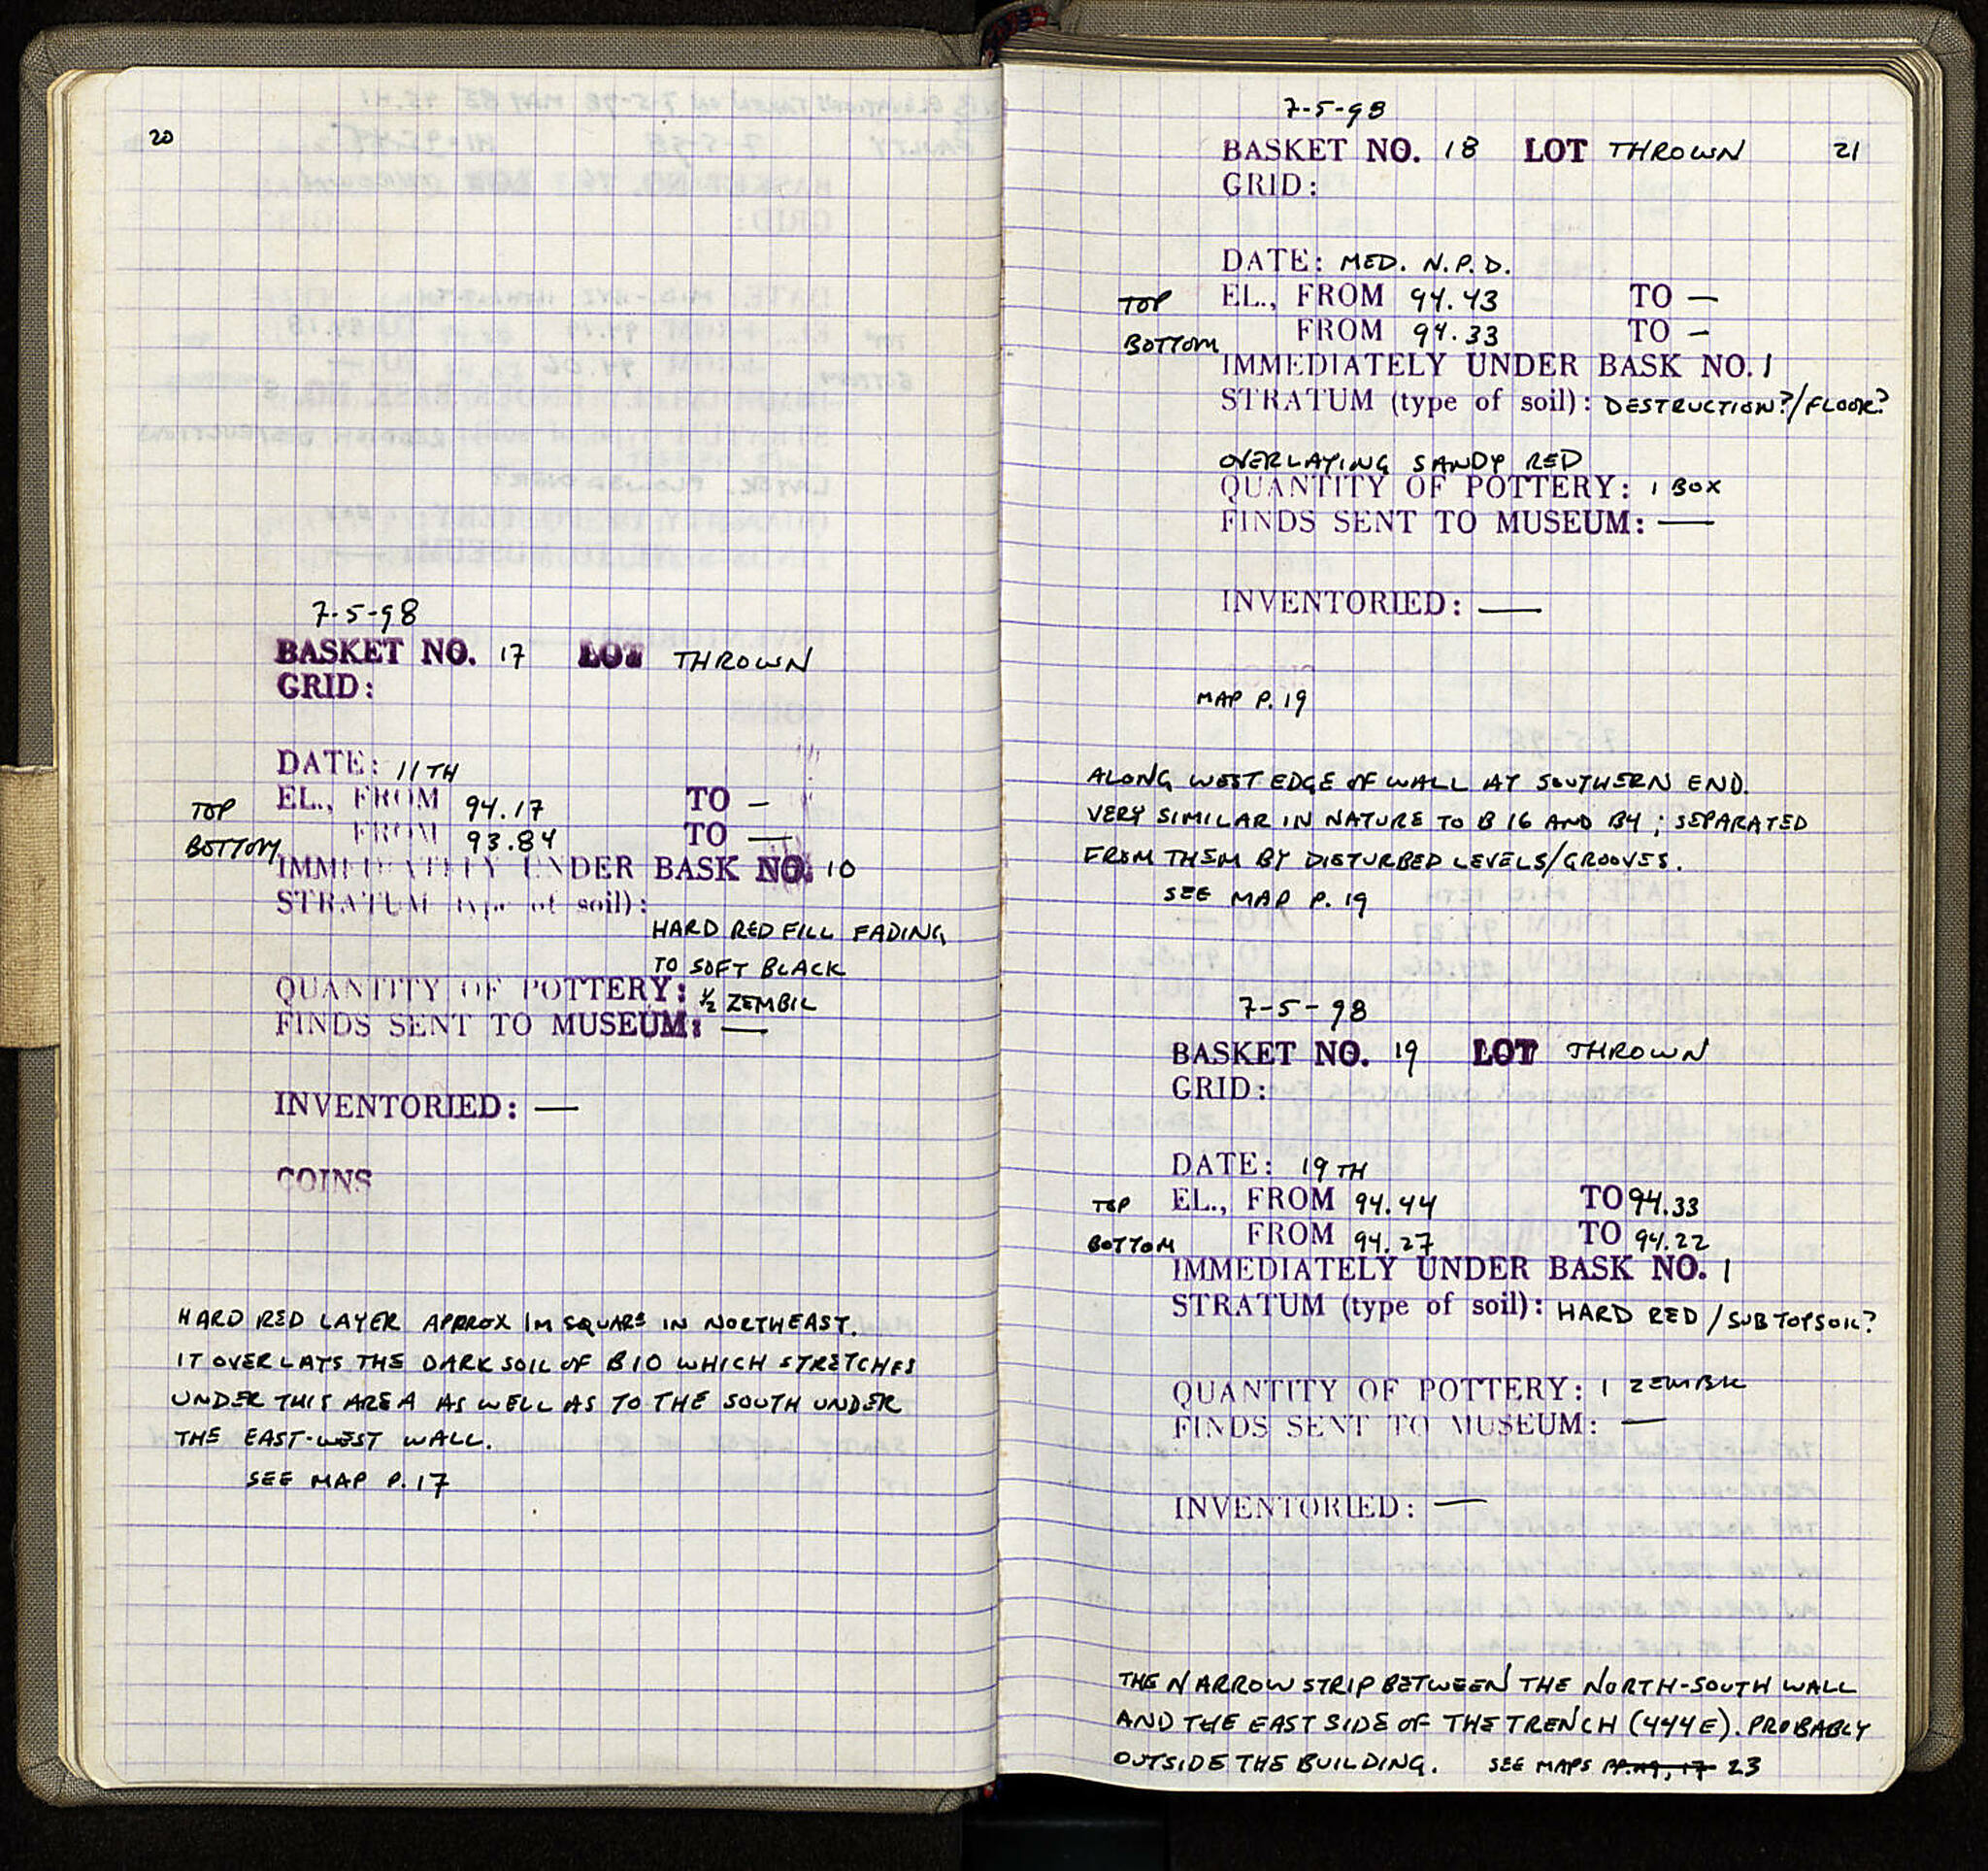 20
7-5-98
BASKET NO. 17 LOT THROWN
GRID:
DATE: 11TH
TOP EL., FROM 94.17 TO —
BOTTOM FROM 93.84 TO —
IMMEDIATELY UNDER BASK NO. 10
STRATUM (type of soil):
HARD RED FILL FADING
TO SOFT BLACK
QUANTITY OF POTTERY: ½ ZEMBIL
FINDS SENT TO MUSEUM: —
INVENTORIED: —
COINS
HARD RED LAYER APPROX 1M SQUARE IN NORTHEAST.
IT OVERLAYS THE DARK SOIL OF B10 WHICH STRETCHES
UNDER THIS AREA AS WELL AS TO THE SOUTH UNDER
THE EAST-WEST WALL.
SEE MAP P.17
7-5-98
BASKET NO. 18 LOT THROWN 21
GRID:
DATE: MED. N.P.D.
TOP EL., FROM 94.43 TO —
BOTTOM FROM 94.33 TO —
IMMEDIATELY UNDER BASK NO. 1
STRATUM (type of soil): DESTRUCTION?/FLOOR?
OVERLAYING SANDY RED
QUANTITY OF POTTERY: 1 BOX
FINDS SENT TO MUSEUM: —
INVENTORIED: —
MAP P.19
ALONG WEST EDGE OF WALL AT SOUTHERN END.
VERY SIMILAR IN NATURE TO B 16 AND B4; SEPARATED
FROM THEM BY DISTURBED LEVELS/GROOVES.
SEE MAP P. 19
7-5-98
BASKET NO. 19 LOT THROWN
GRID:
DATE: 19TH
TOP EL., FROM 94.44 TO 94.33
BOTTOM FROM 94.27 TO 94.22
IMMEDIATELY UNDER BASK NO. 1
STRATUM (type of soil): HARD RED/SUBTOPSOIL?
QUANTITY OF POTTERY: 1 ZEMBIL
FINDS SENT TO MUSEUM: —
INVENTORIED: —
THE NARROW STRIP BETWEEN THE NORTH-SOUTH WALL
AND THE EAST SIDE OF THE TRENCH (444E). PROBABLY
OUTSIDE THE BUILDING. SEE MAPS 23